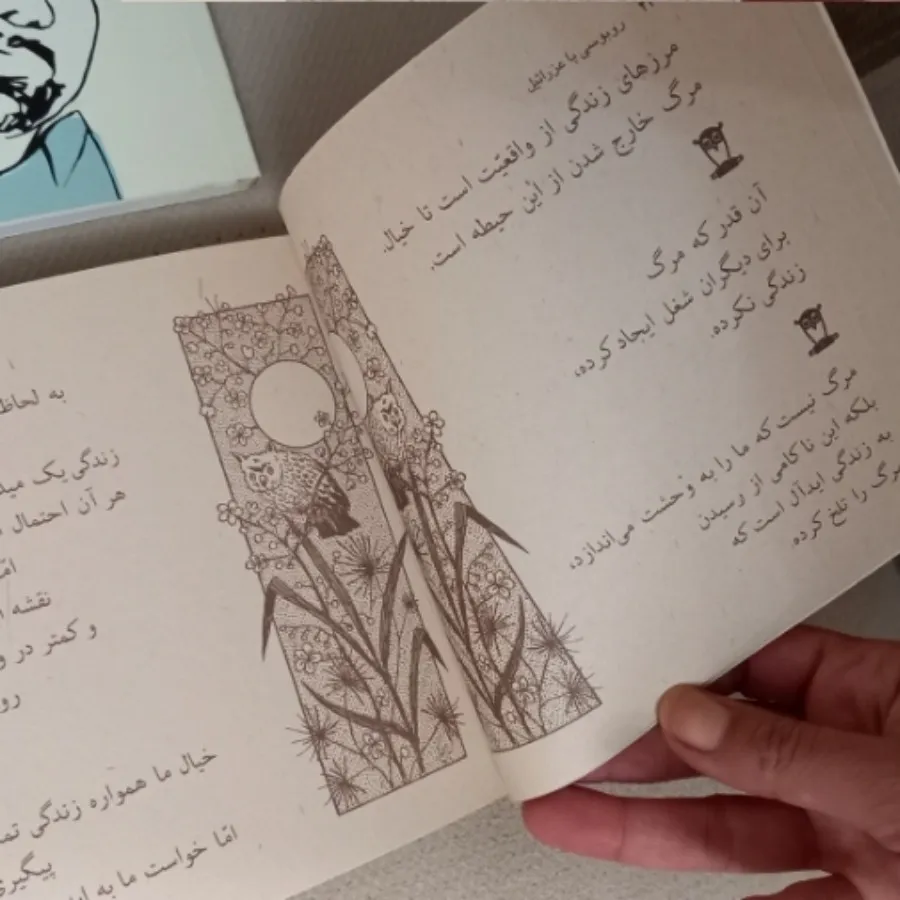 روبوسی با عزرائیل
مرزهای زندگی از واقعیّت است تا خیال.
مرگ خارج شدن از این حیطه است.
آن قدر که مرگ
برای دیگران شغل ایجاد کرده،
زندگی نکرده.
مرگ نیست که ما را به وحشت می‌اندازد،
بلکه این ناکامی از رسیدن
به زندگی ایدآل است که
مرگ را تلخ کرده.
به لحاظ
زندگی یک
هر آن احتمال
امّا
نقشه
و کمتر در
خیال ما همواره زندگی
پیگیری
امّا خواست ما به